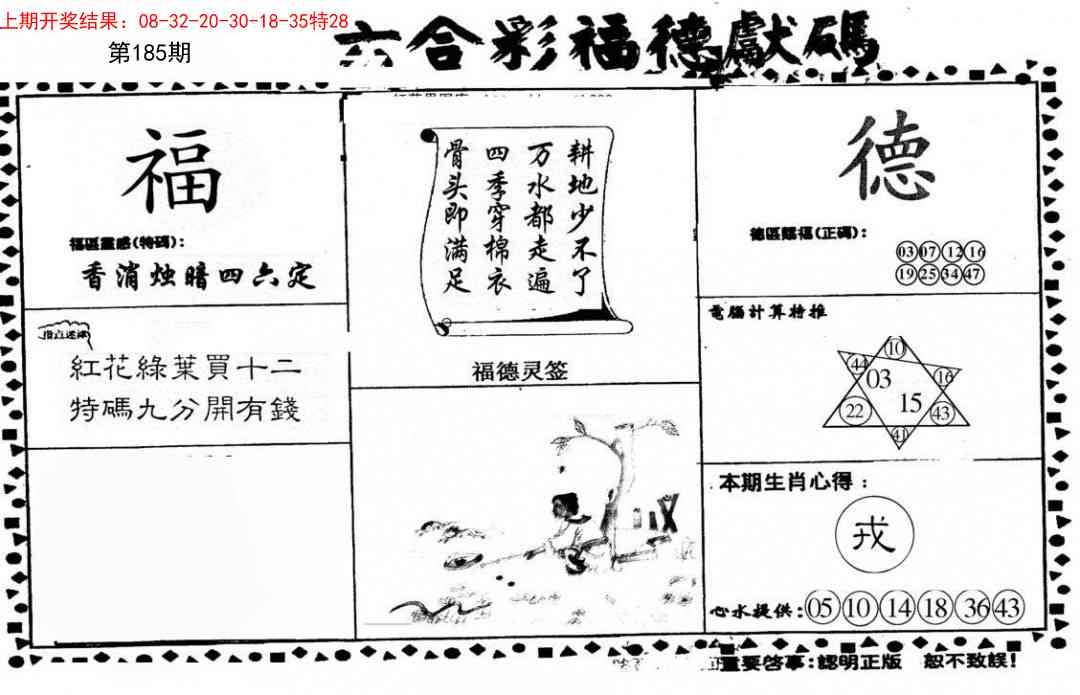 上期开奖结果：08-32-20-30-18-35特28
第185期
六合彩福德獻碼
福
福區靈感(特碼)：
香消烛暗四六定
紅花綠葉買十二
特碼九分開有錢
耕地少不了
万水都走遍
四季穿棉衣
骨头即满足
福德灵签
德
德區賜福(正碼)：
03 07 12 16
19 25 34 47
電腦計算特推
10
44 03 16
22 15 43
41
本期生肖心得：
戎
心水提供:05 10 14 18 36 43
重要啓事:認明正版 恕不致誤!